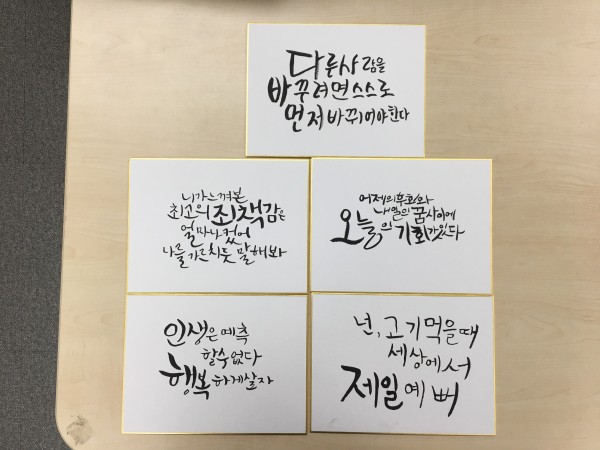 다른사람을
바꾸려면스스로
먼저바뀌어야한다
니가느껴본
최고의 죄책감은
얼마나컸어
나를가르치듯 말해봐
어제의후회와
내일의 꿈사이에
오늘의 기회가있다
인생은 예측
할수없다
행복하게살자
넌, 고기먹을때
세상에서
제일 예뻐